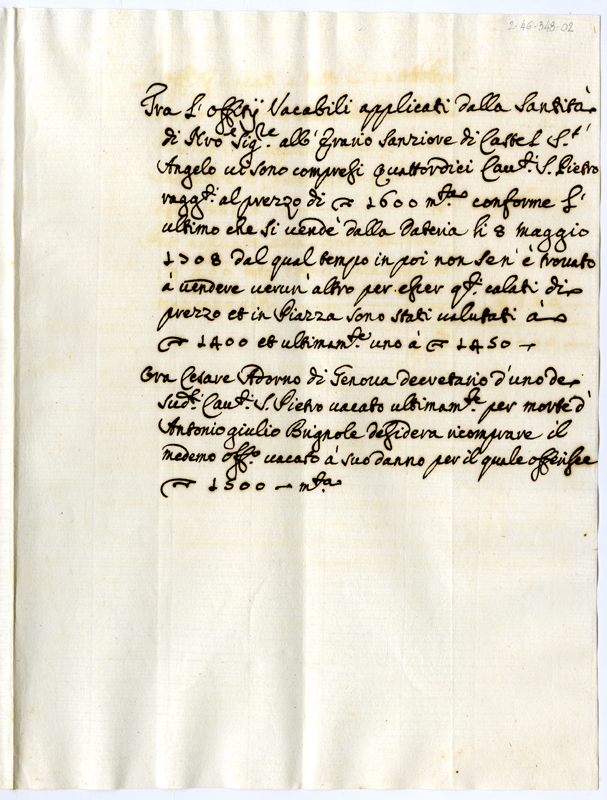 2-46-348-02
Tra l'offitij Vacabili applicati dalla Santità
di Nro Sigre all'Erario Sanziore di Castel S.t
Angelo vi sono compresi quattordici Caud.i S. Pietro
ragg.ti al prezzo di 1600 mta conforme l'
ultimo che si vendè dalla Dateria li 8 maggio
1708 dal qual tempo in poi non se n'è trovato
à vendere verun'altro per esser q.ti calati di
prezzo et in Piazza sono stati valutati à
1400 et ultimam.te uno à 1450 -
Ora Cesare Adorno di Genova decretario d'uno de
sud.ti Cau.ti S. Pietro vacato ultimam.te per morte d'
Antonio giulio Brignole desidera ricomprare il
medemo offo vacato à suo danno per il quale offerisce
1500 - mta